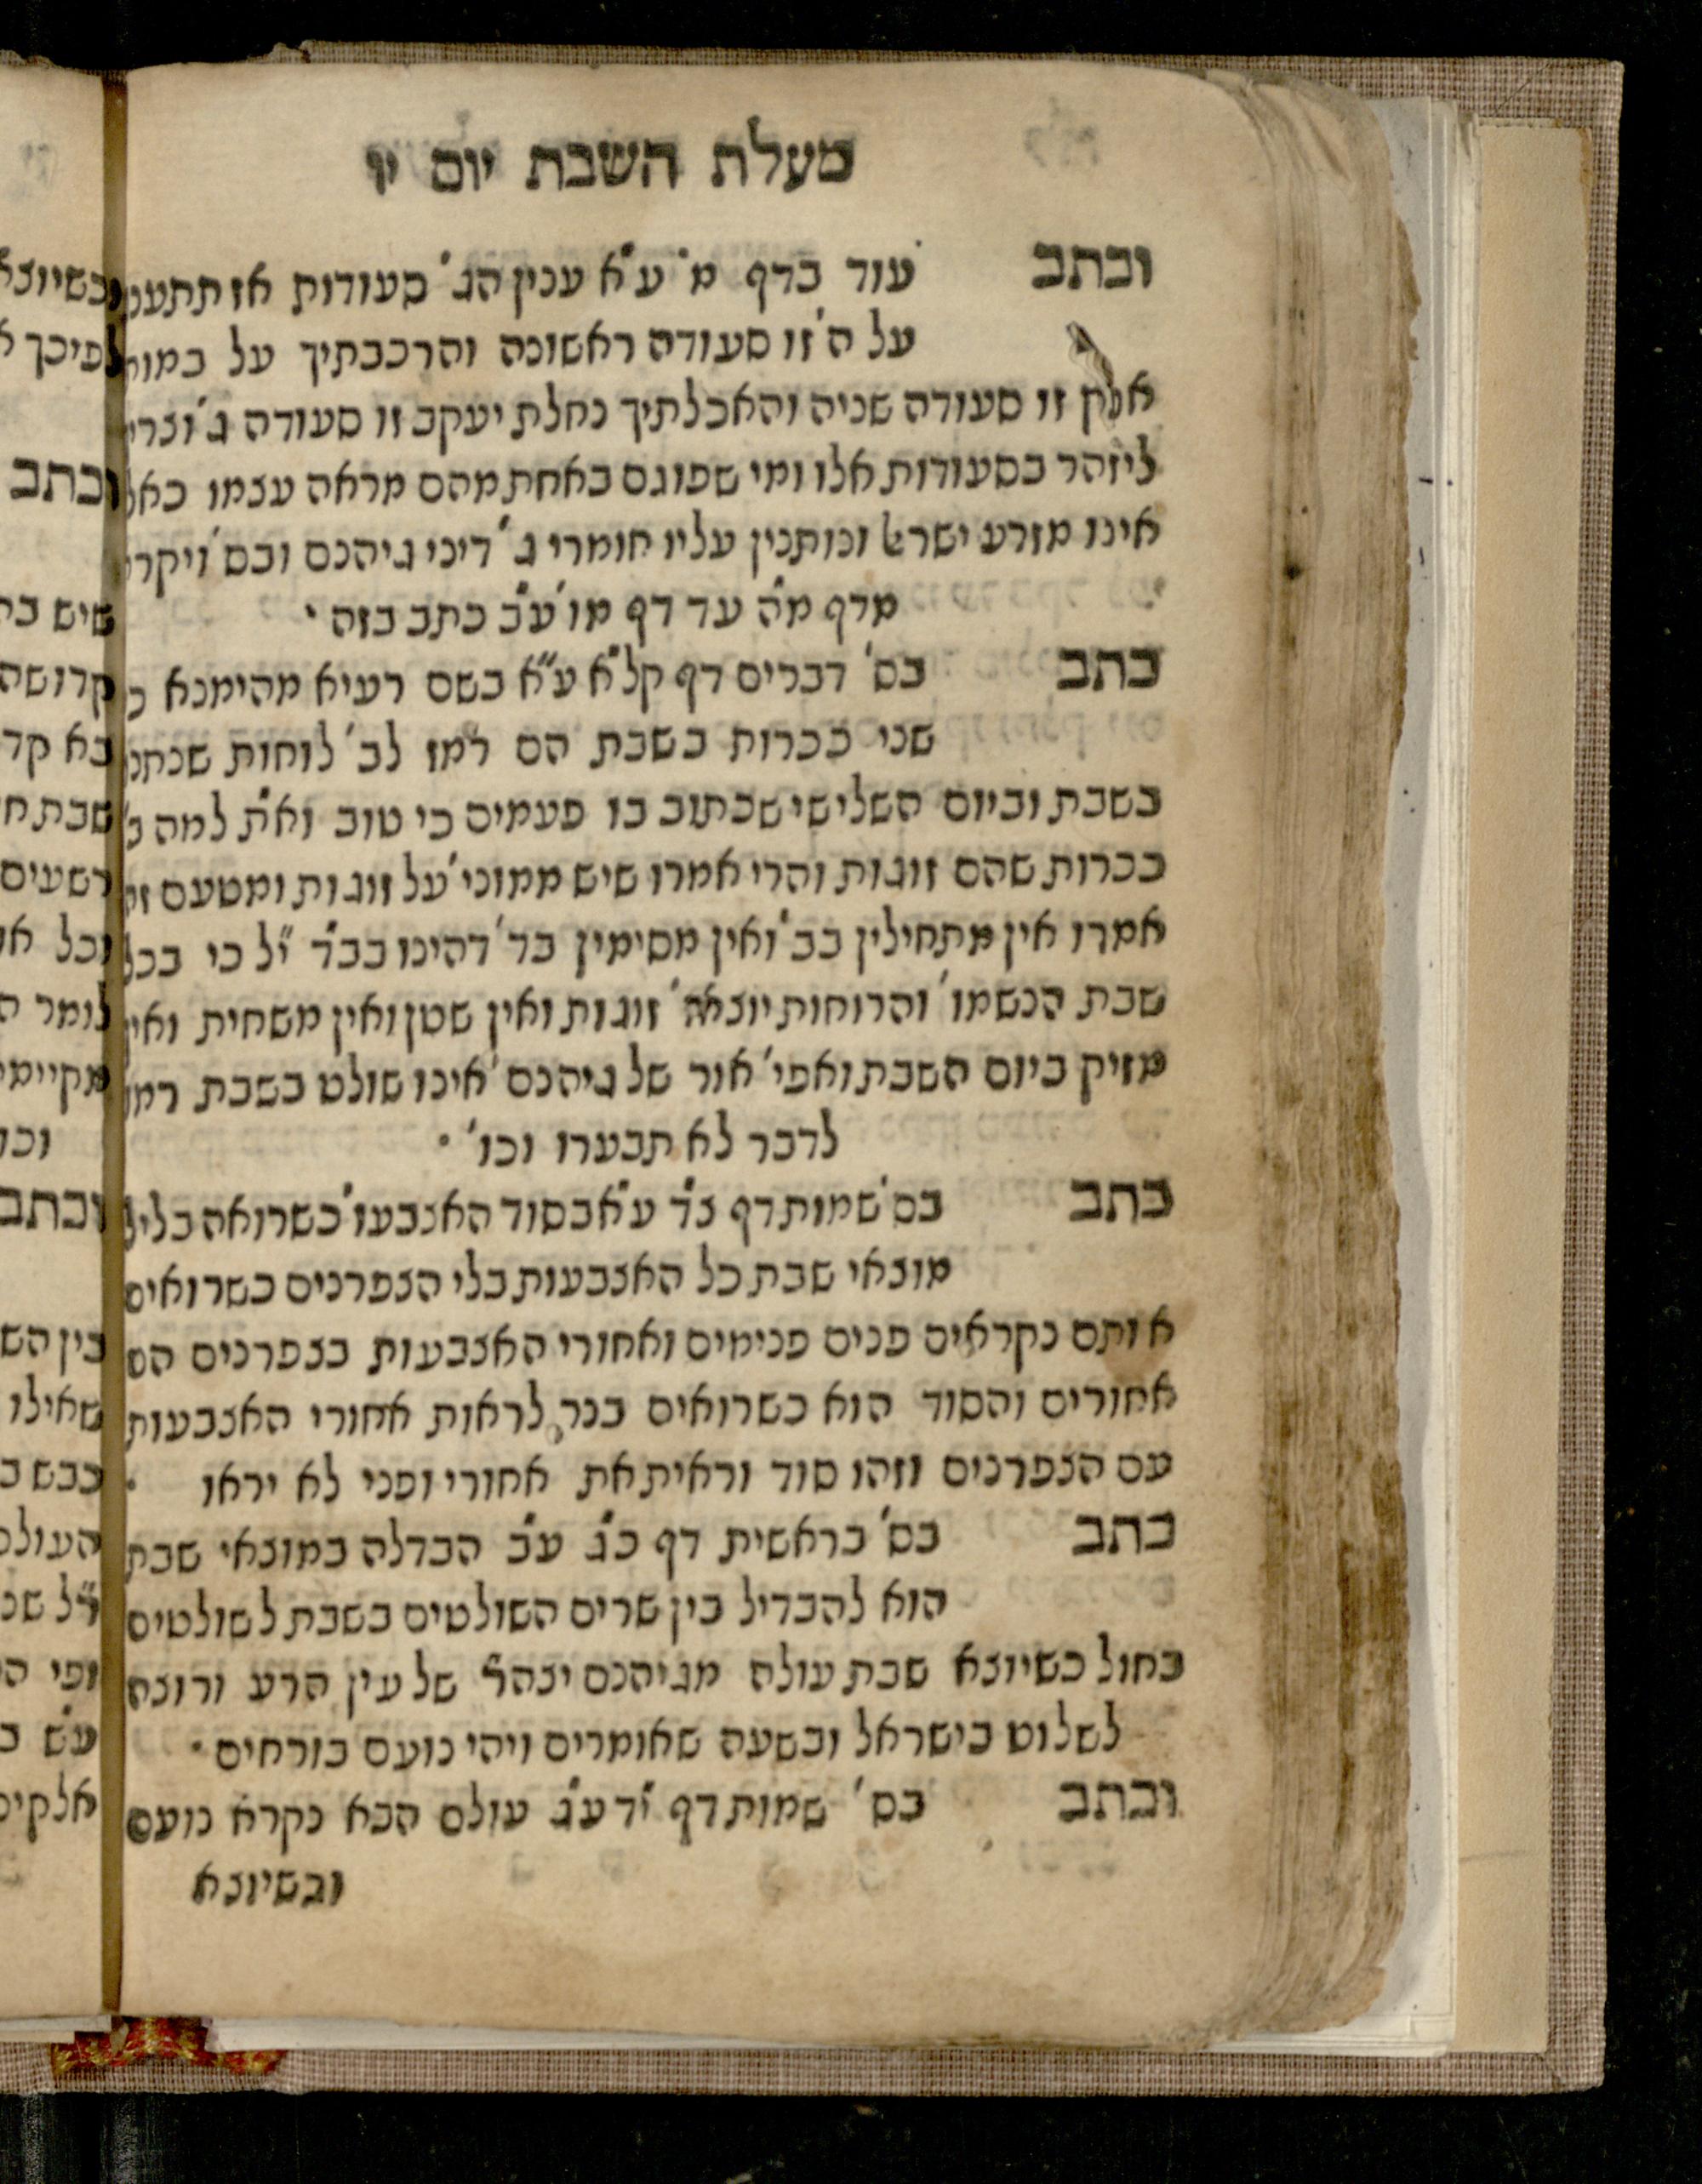 מעלת השבת יום ו׳
ובתב עוד בדף מ׳ ע״א ענין הג׳ סעודות אז תתענג
על ה׳ זו סעודה ראשונה והרכבתיך על במותי
ארץ זו סעודה שניה והאכלתיך נחלת יעקב זו סעודה ג׳ וצריך
ליזהר בסעודות אלו ומי שפוגם באחת מהם מראה עצמו כאלו
אינו מזרע ישראל ונותנין עליו חומרי ג׳ דיני גיהנם ובס׳ ויקרא
מדף מ״ה עד דף מו׳ ע״ב כתב בזה •
כתב בס׳ דברים דף קל״א ע״א בשם רעיא מהימנא כי
שני ככרות בשבת הם רמז לב׳ לוחות שנתנו
בשבת וביום השלישי שכתוב בו פעמים כי טוב וא״ת למה ב׳
ככרות שהם זוגות והרי אמרו שיש ממוני׳ על זוגות ומטעם זה
אמרו אין מתחילין בב׳ ואין מסימין בד׳ דהינו בב״ד י״ל כי בכל
שבת הנשמו׳ והרוחות יוצאה׳ זוגות ואין שטן ואין משחית ואין
מזיק ביום השבת ואפי׳ אור של גיהנם׳ אינו שולט בשבת רמז
לדבר לא תבערו וכו׳ •
כתב בס׳ שמות דף צ״ד ע״א בסוד האצבעו׳ כשרואה בליל
מוצאי שבת כל האצבעות בלי הצפרנים כשרואים
אותם נקראים פנים פנימים ואחורי האצבעות בצפרנים הם
אחורים והסוד הוא כשרואים בנר לראות אחורי האצבעות
עם הצפרנים וזהו סוד וראית את אחורי ופני לא יראו •
כתב בס׳ בראשית דף כ״ג ע״ב הבדלה במוצאי שבת
הוא להבדיל בין שרים השולטים בשבת לשולטים
בחול כשיוצא שבת עולה מגיהנם יצה״ר של עין הרע ורוצה
לשלוט בישראל ובשעה שאומרים ויהי נועם בורחים •
ובתב בס׳ שמות דף י״ד ע״ג עולם הבא נקרא נועם
ובשיוצא